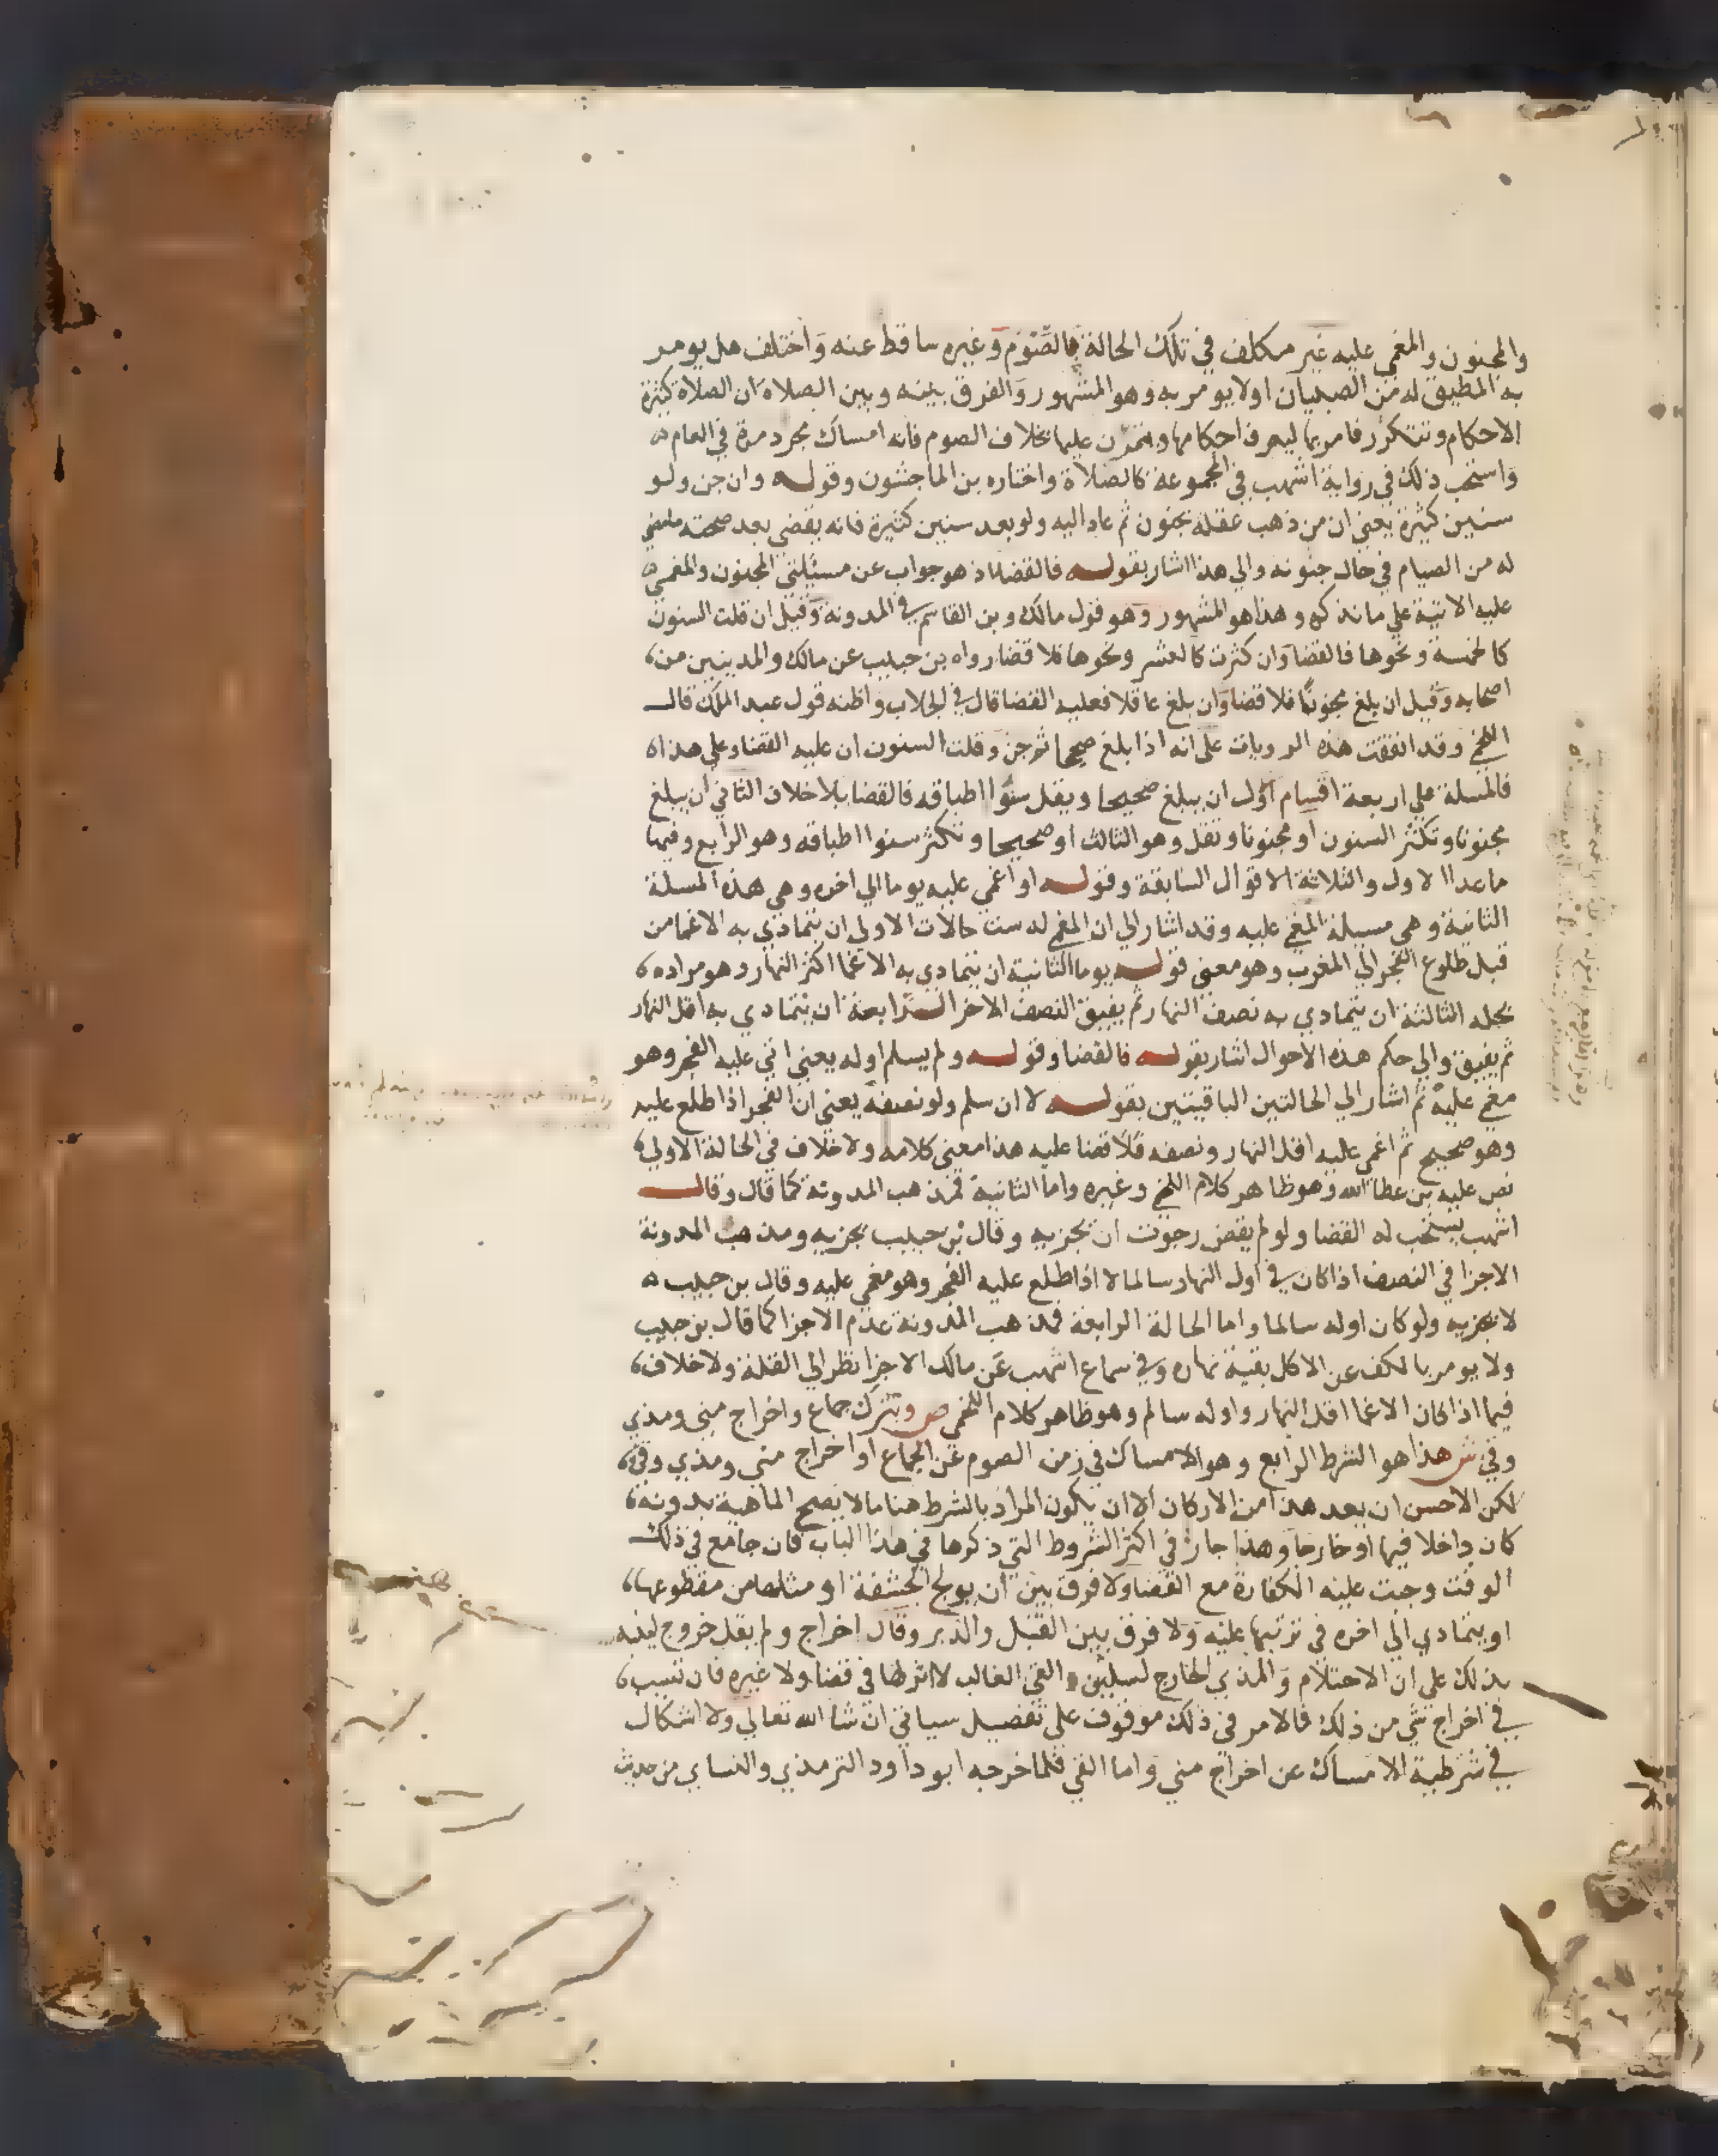 والمجنون والمغمي عليه غير مكلف في تلك الحالة فالصوم وغيره ساقط عنه واختلف هل يومر
به المطيق له من الصبيان اولا يومر به وهو المشهور والفرق بينه وبين الصلاه ان الصلاة كثيرة
الاحكام وتتكرر فامر بها ليعرف احكامها ويتمرن عليها بخلاف الصوم فانه امساك مجرد مرة في العام
واستحب ذلك في رواية اشهب في المجموعة كالصلاة واختاره بن الماجشون وقوله وان جن ولو
سنين كثيرة يعني ان من ذهب عقله بجنون ثم عاد اليه ولو بعد سنين كثيرة فانه يقضي بعد صحته ما مضي
له من الصيام في حال جنونه والي هذا اشار بقوله فالقضا اذ هو جواب عن مسيلتي المجنون والمغمي
عليه الاتية علي ما نذكره وهذا هو المشهور وهو قول مالك وبن القاسم في المدونة وقيل ان قلت السنون
كالخمسة ونحوها فالقضا وان كثرت كالعشر ونحوها فلا قضا رواه بن حبيب عن مالك والمدنيين من
اصحابه وقيل ان بلغ مجنونا فلا قضا وان بلغ عاقلا فعليه القضا قال في الجلاب واظنه قول عبد الملك قال
اللخمي وقد اتفقت هذه الروايات علي انه اذا بلغ صحيحا ثم جن وقلت السنون ان عليه القضا وعلي هذا
فالمسلة علي اربعة اقسام اول ان يبلغ صحيحا ويقل سنوا اطباقه فالقضا بلا خلاف الثاني ان يبلغ
مجنونا وتكثر السنون او مجنونا وتقل وهو الثالث او صحيحا وتكثر سنوا اطباقه وهو الرابع وفيما
ما عدا الاول والثلاثة الاقوال السابقة وقوله او اغمي عليه يوما الي اخره وهي هذه المسلة
الثانية وهي مسيلة المغمي عليه وقد اشار الي ان المغمي له ست حالات الاولي ان يتمادي به الاغما من
قبل طلوع الفجر الي المغرب وهو معني قوله يوما الثانية ان يتمادي به الاغما اكثر النهار وهو مراده
بجله الثالثة ان يتمادي به نصف النهار ثم يفيق النصف الاخر الرابعة ان يتمادي به اقل النهار
ثم يفيق والي حكم هذه الاحوال اشار بقوله فالقضا وقوله ولم يسلم اوله يعني اتي عليه الفجر وهو
مغمي عليه ثم اشار الي الحالتين الباقيتين بقوله لا ان سلم ولو نصفه يعني ان الفجر اذا طلع عليه
وهو صحيح ثم اغمي عليه اقل النهار ونصفه فلا قضا عليه هذا معني كلامه ولا خلاف في الحالة الاولي
نص عليه بن عطا الله وهو ظاهر كلام اللخمي وغيره واما الثانية فمذهب المدونة كما قال وقال
اشهب يستحب له القضا ولو لم يقض رجوت ان تجزيه وقال بن حبيب تجزيه ومذهب المدونة
الاجزا في النصف اذا كان في اول النهار سالما لا اذا طلع عليه الفجر وهو مغمي عليه وقال بن حبيب
لا تجزيه ولو كان اوله سالما واما الحالة الرابعة فمذهب المدونة عدم الاجزا كما قال بن حبيب
ولا يومر بالكف عن الاكل بقية نهاره وفي سماع اشهب عن مالك الاجزا نظرا الي القلة ولا خلاف
فيما اذا كان الاغما اقل النهار واوله سالم وهو ظاهر كلام اللخمي ص وبترك جماع واخراج مني ومذي
وقي ش هذا هو الشرط الرابع وهو الامساك في زمن الصوم عن الجماع او اخراج مني ومذي وقي
لكن الاحسن ان يعد هذا من الاركان الا ان يكون المراد بالشرط هنا ما لا تصح الماهية بدونه
كان داخلا فيها او خارجا وهذا جار في اكثر الشروط التي ذكرها في هذا الباب فان جامع في ذلك
الوقت وجبت عليه الكفارة مع القضا ولا فرق بين ان يولج الحشفة او مثلها من مقطوعها
او يتمادي الي اخره في ترتبها عليه ولا فرق بين القبل والدبر وقال اخراج ولم يقل خروج لينبه
بذلك علي ان الاحتلام والمذي الخارج لسلس والقي الغالب لا اثر لها في قضا ولا غيره فان تسبب
في اخراج شي من ذلك فالامر في ذلك موقوف علي تفصيل سياتي ان شا الله تعالي ولا اشكال
في شرطية الامساك عن اخراج مني واما القي فلما خرجه ابو داود الترمذي والنساي من حديث